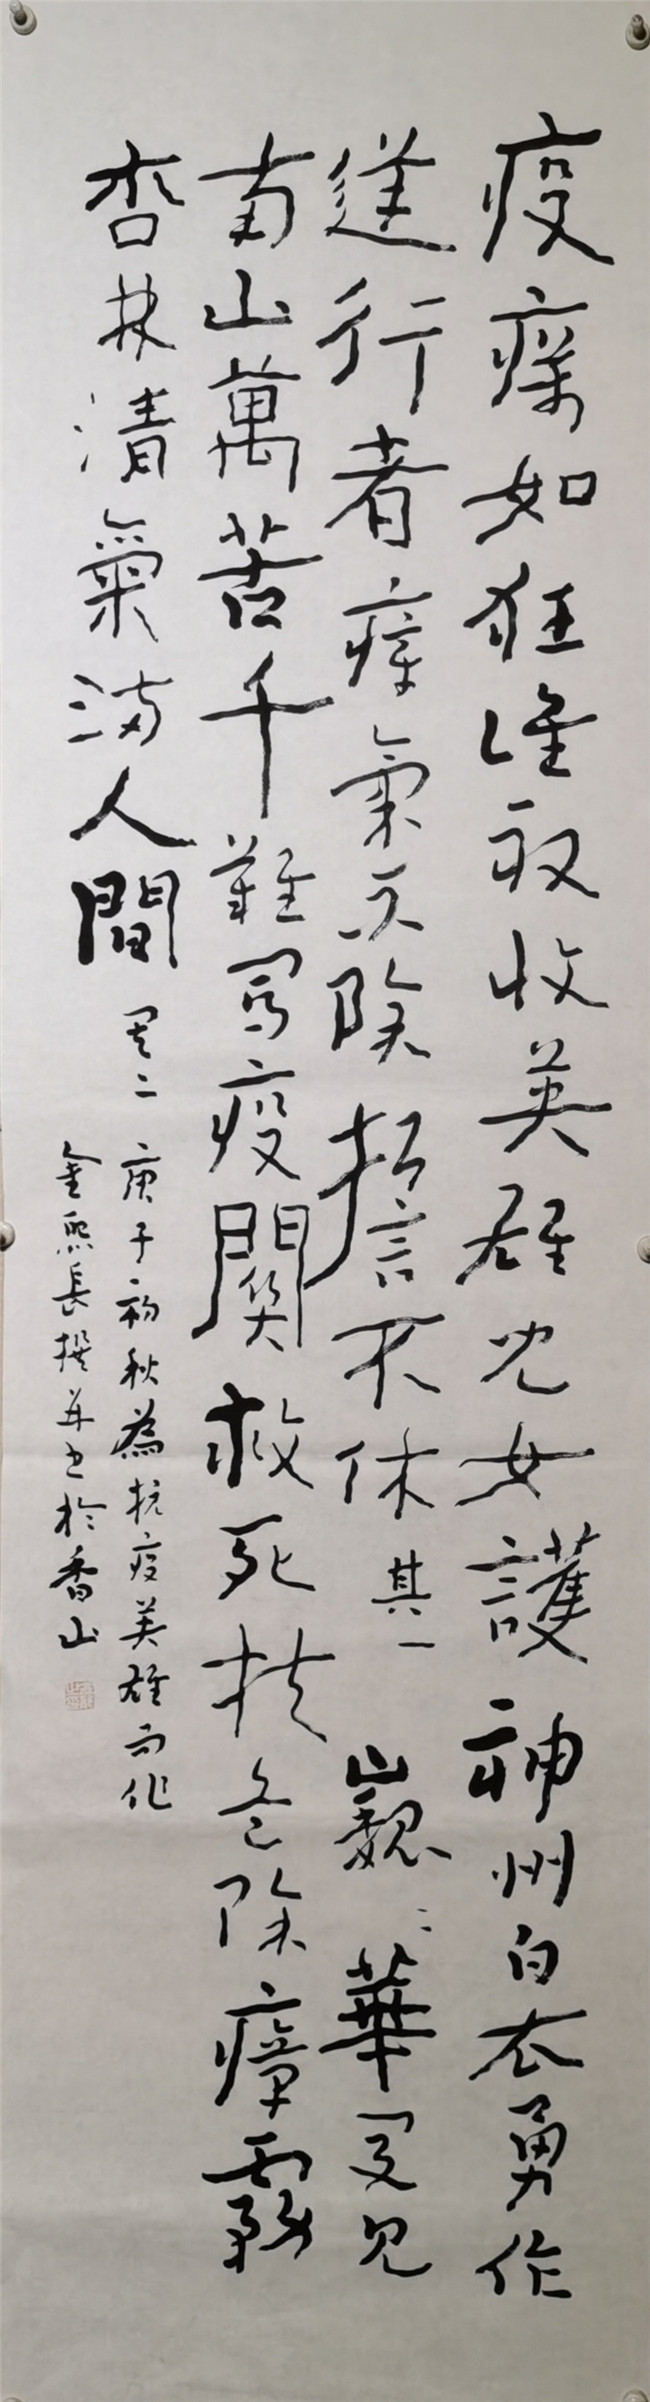 疫癘如狂誰敢收英雄兒女護神州白衣勇作
逆行者瘴氣不除誓言不休其一巍々華夏見
南山萬苦千難闖疫關救死扶危除瘴霧
杏林清氣滿人間其二
庚子初秋為抗疫英雄而作
金熙長撰并書於香山